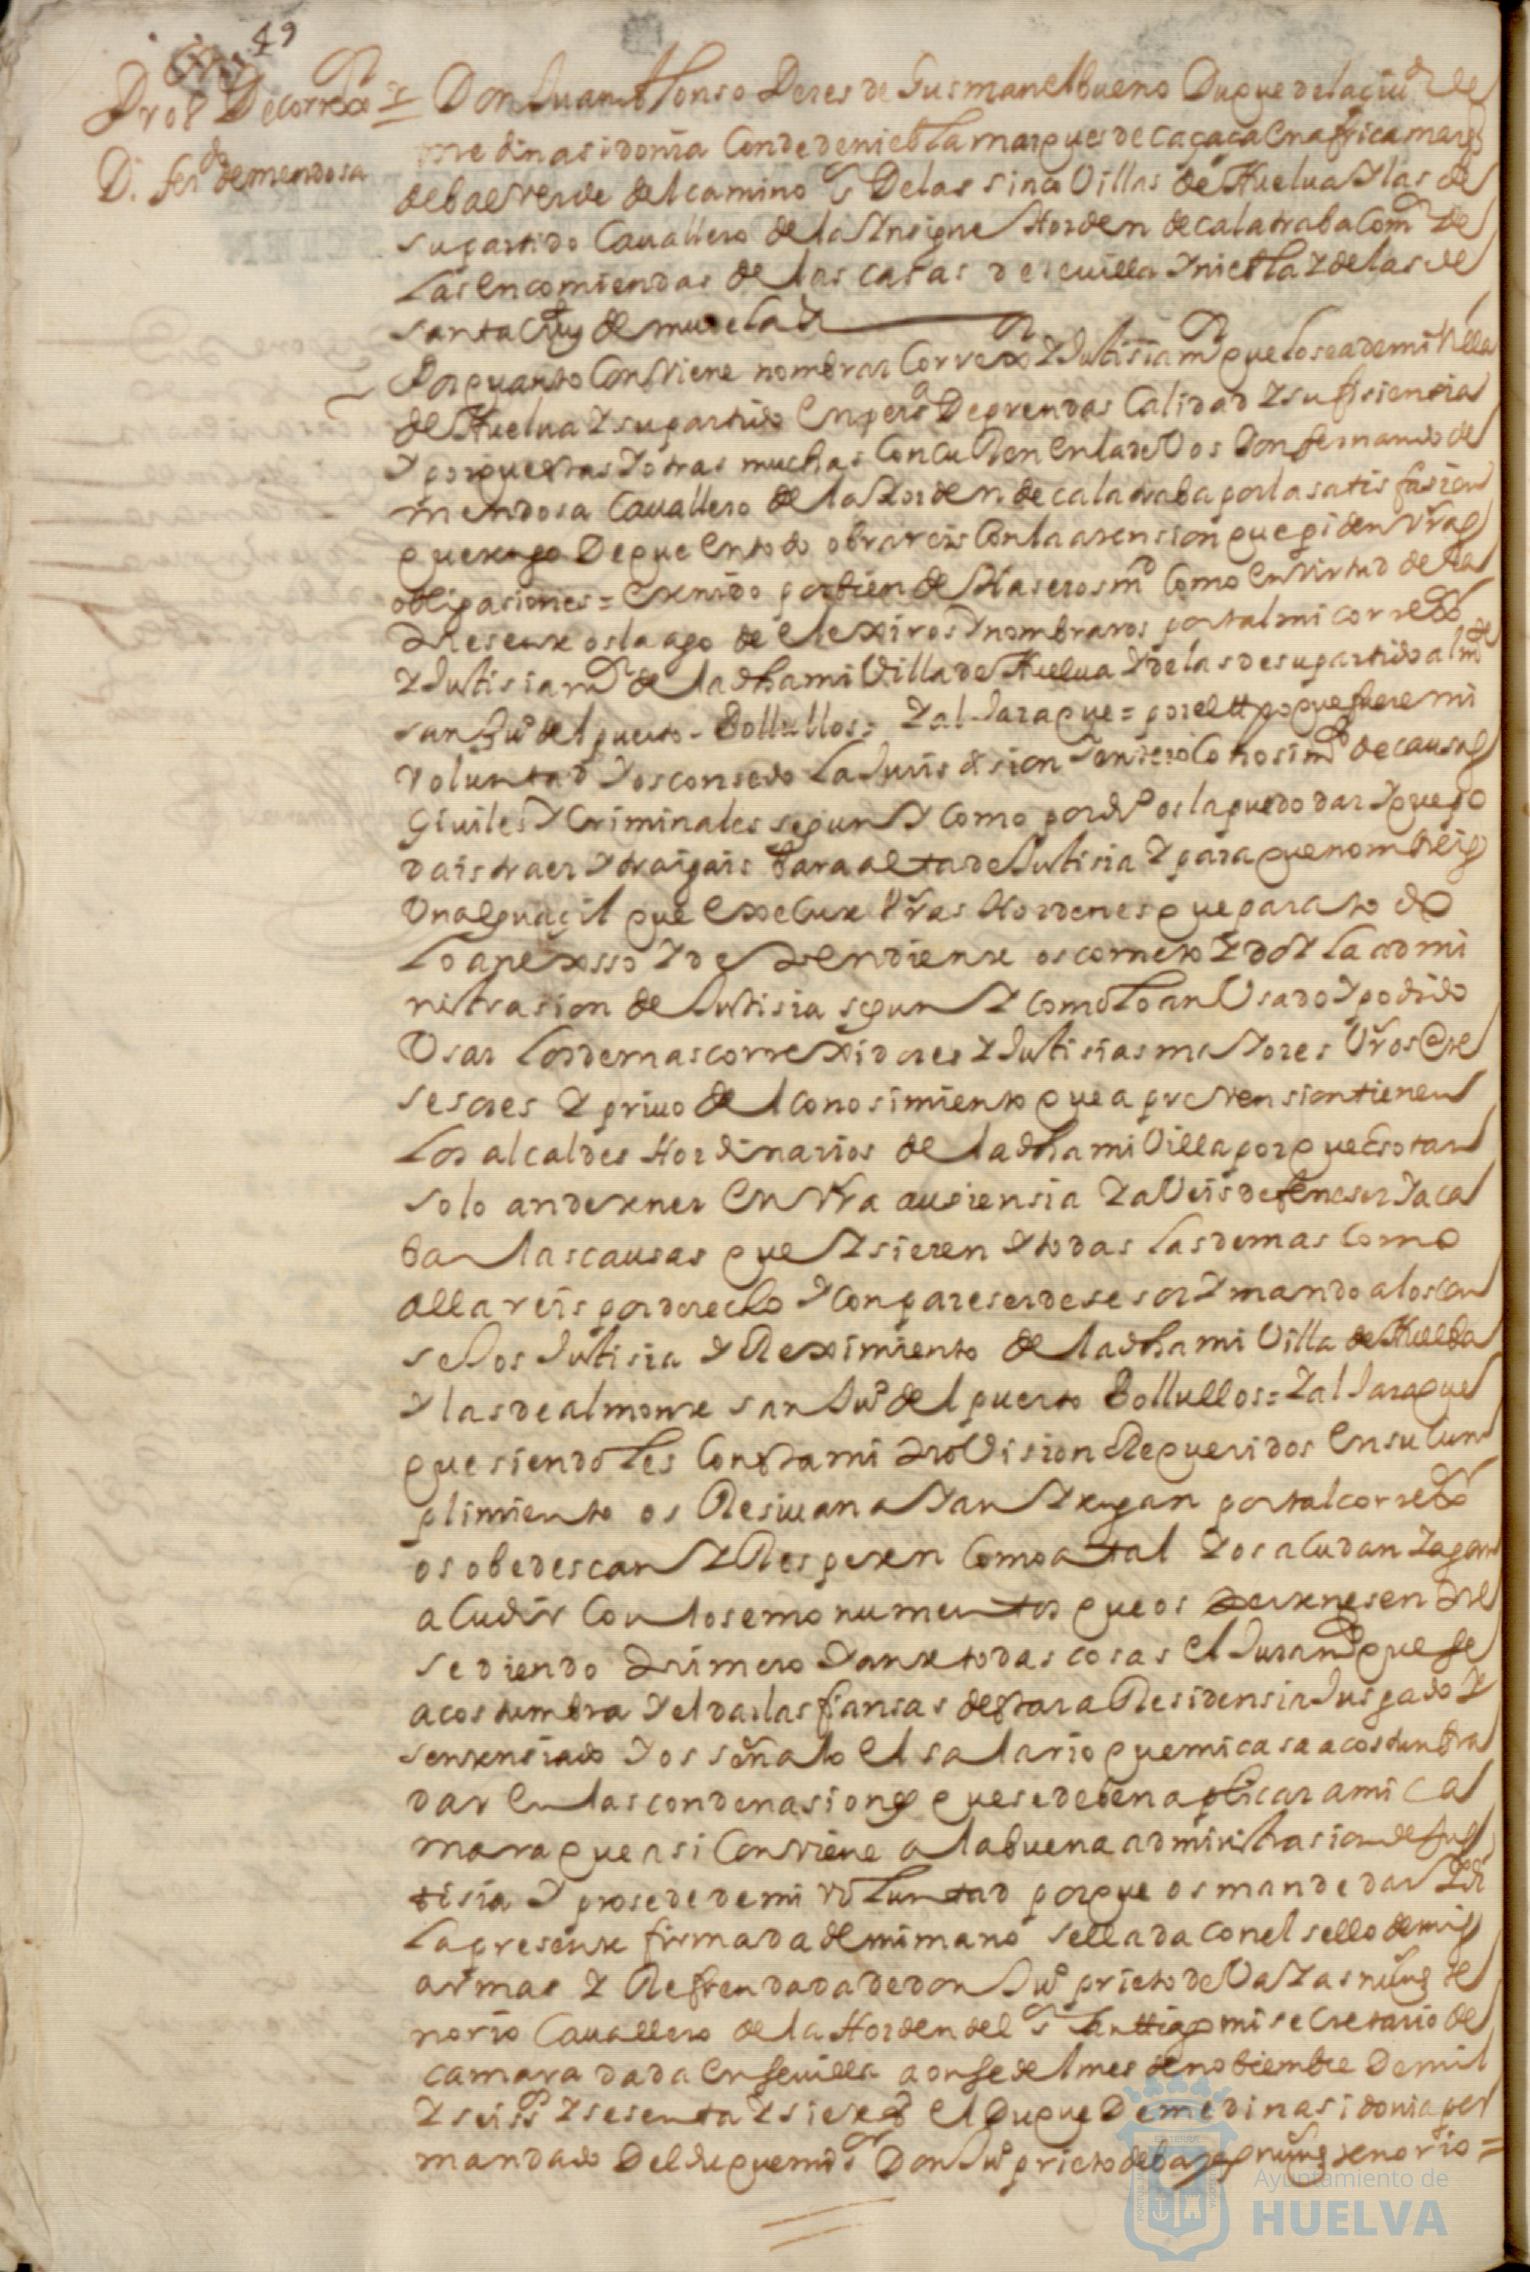 49
Prov De corregor
D. ferdo de mendosa
Don Juan Alonso Peres de Gusman el bueno Duque de la çiud de
medina sidonia Conde de niebla marques de caçaça en africa marqs
del baeverde del camino Sr De las sinco Villas de Huelua y las de
su partido Cauallero de la Ynsigne Horden de calatraba Comor de
las encomiendas de las casas de seuilla y niebla y de las de
santa Cruz de mudela &
Por quanto Conviene nombrar Corregor y Justisia mor que lo sea de mi Villa
de Huelua y su partido en persa De prendas Calidad y sufisiensia
y porque estas y otras muchas Concurren en la de Vos Don fernando de
mendosa Cauallero de la Horden de calatraba por la satisfasion
que tengo De que en todo obrareis Con la atension que piden vras
obligasiones = e tenido por bien de Haseros md Como en Virtud de la
presente os la ago de elexiros y nombraros por tal mi corregor
y Justisia mor de la dha mi Villa de Huelua y de las de su partido almte
san Juo del puerto - Bollullos = y al Jaraque = por el tpo que fuere mi
voluntad y os consedo la Jurisdision Entero Conosimto de causas
Giuiles y Criminales segun y Como por dro os la puedo dar y puego
dais traer y traigais bara alta de Justisia y para que nombreis
Un alguaçil que execute Vras Hordenes que para todo
lo anexsso y dependiente os cometo y doy la admi
nistrasion de Justisia segun y Como lo an Usado y podido
Usar los demas correxidores y Justisias mayores Vros ante
sesores y priuo del conosimiento que a prevension tienen
los alcaldes Hordinarios de la dha mi Villa porque Eso tan
solo an de tener en Vra audiensia y aveis de feneser y aca
bar las causas que se ysieren y todas las demas Como
allareis por derecho y con pareser de asesor y mando a los con
sejos Justisia y Reximiento de la dha mi Villa de Huelba
y las de almonte san Juo del puerto Bollullos = y al Jaraque
que siendoles Con esta mi provision Requeridos en su cun
plimiento os Resiuan ayan y tengan por tal corregor
os obedescan y Respeten Como a tal y os acudan y agan
acudir Con los emonumentos que os pertenesen pre
sediendo primero y ante todas cosas el Juramto que se
acostumbra y el dar las fiansas de estar a Residensia Jusgado y
sentensiado y os señalo el salario que mi casa acostunbra
dar en las condenasiones que se deben aplicar a mi ca
mara que asi Conviene a la buena administrasion de Jus
tisia y prosede de mi voluntad porque os mande dar y di
la presente firmada de mi mano sellada con el sello de mis
armas y Refrendada de don Juo prieto de Vayas nuñes te
norio Cauallero de la Horden del Sr Santtiago mi secretario de
camara dada en seuilla a onse del mes de nobiembre De mil
y seissos y sesenta y siete es el Duque De medina sidonia por
mandado Del duque mi sr Don Juo prieto de bayas nuñes tenorio =
Ayuntamiento de
HUELVA